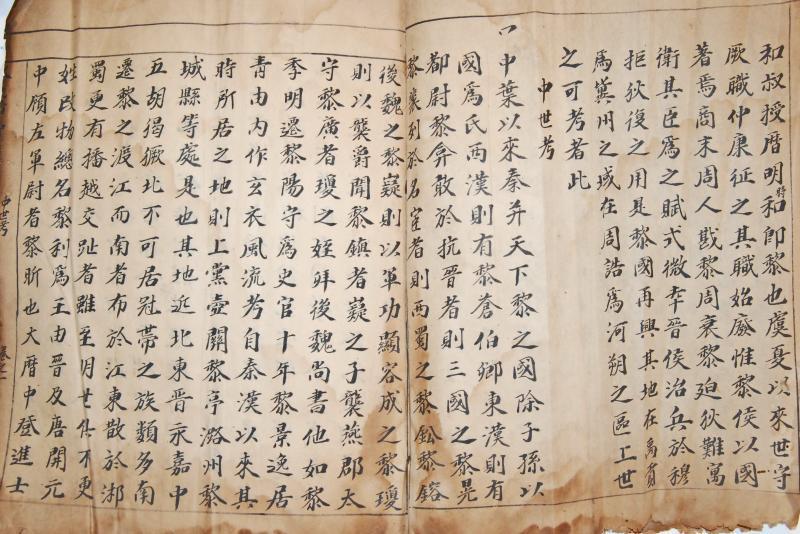 和叔授曆明時和即黎也虞夏以來世守
厥職仲康征之其職始廢惟黎侯以國
著焉商末周人戡黎周衰黎迫狄難寓
衛其臣爲之賦式微幸晉侯治兵於稷
拒狄復之用是黎國再興其地在禹貢
爲冀州之域在周誥爲河朔之區上世
之可考者此
中世考
中葉以來秦并天下黎之國除子孫以
國爲氏西漢則有黎蒼伯鄉東漢則有
都尉黎弇敢於抗晋者則三國之黎晃
黎襄列於名宦者則西蜀之黎鈆黎鎔
後魏之黎嶷則以軍功顯容成之黎瓊
則以襲爵聞黎鎮者嶷之子襲燕郡太
守黎廣者瓊之姪拜後魏尚書他如黎
季明遷黎陽守爲史官十年黎景逸居
青由內作玄衣風流考自秦漢以來其
時所居之地則上黨壺關黎亭潞州黎
城縣等處是也其地近北東晋永嘉中
五胡猖獗北不可居冠帶之族類多南
遷黎之渡江而南者布於江東散於湖
蜀更有播越交趾者雖至明世俱不更
姓改物總名黎利爲王由晋及唐開元
中領左軍尉者黎昕也大曆中登進士
中世考
卷之一